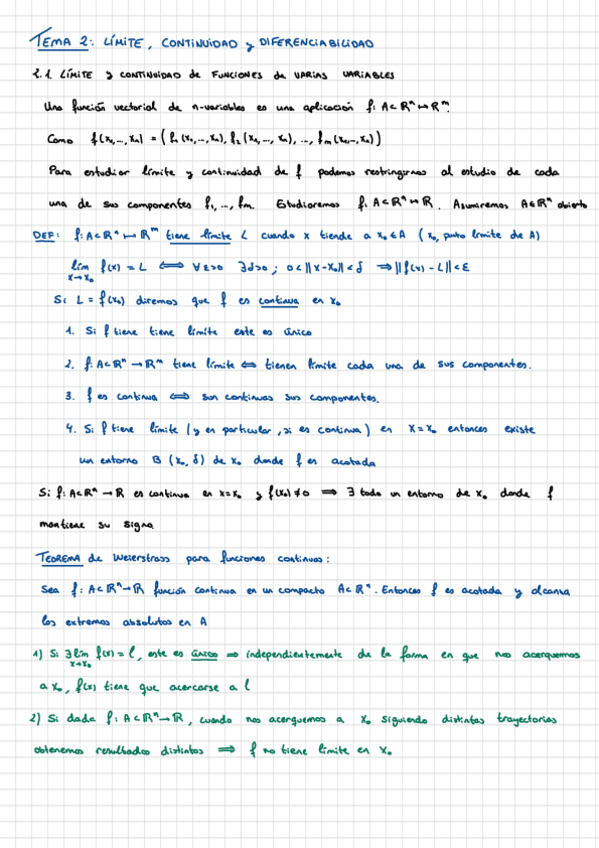 TEMA 2: LÍMITE, CONTINUIDAD y DIFERENCIABILIDAD
2.1 LÍMITE y CONTINUIDAD de FUNCIONES de VARIAS VARIABLES
Una función vectorial de n-variables es una aplicación f: A⊂ℝⁿ ↦ ℝᵐ.
Como f(x₁,...,xₙ) = (f₁(x₁,...,xₙ), f₂(x₁,...,xₙ), ..., fₘ(x₁,...,xₙ))
Para estudiar límite y continuidad de f podemos restringirnos al estudio de cada
una de sus componentes f₁,...,fₘ. Estudiaremos f: A⊂ℝⁿ ↦ ℝ. Asumiremos A∈ℝⁿ abierto
DEF: f: A⊂ℝⁿ ↦ ℝᵐ tiene límite L cuando x tiende a x₀∈A (x₀ punto límite de A)
lím f(x) = L ⟺ ∀ε>0 ∃δ>0 ; 0<||x-x₀||<δ ⇒ ||f(x)-L||<ε
x→x₀
Si L = f(x₀) diremos que f es continua en x₀
1. Si f tiene límite este es único
2. f: A⊂ℝⁿ → ℝᵐ tiene límite ⟺ tienen límite cada una de sus componentes.
3. f es continua ⟺ son continuas sus componentes.
4. Si f tiene límite (y en particular, si es continua) en x=x₀ entonces existe
un entorno B (x₀, δ) de x₀ donde f es acotada
Si f: A⊂ℝⁿ → ℝ es continua en x=x₀ y f(x₀)≠0 ⟹ ∃ todo un entorno de x₀ donde f
mantiene su signo
TEOREMA de Weierstrass para funciones continuas:
Sea f: A⊂ℝⁿ→ℝ función continua en un compacto A⊂ℝⁿ. Entonces f es acotada y alcanza
los extremos absolutos en A
1) Si ∃ lím f(x) = l, este es único ⟹ independientemente de la forma en que nos acerquemos
x→x₀
a x₀, f(x) tiene que acercarse a l
2) Si dada f: A⊂ℝⁿ→ℝ, cuando nos acerquemos a x₀ siguiendo distintas trayectorias
obtenemos resultados distintos ⟹ f no tiene límite en x₀